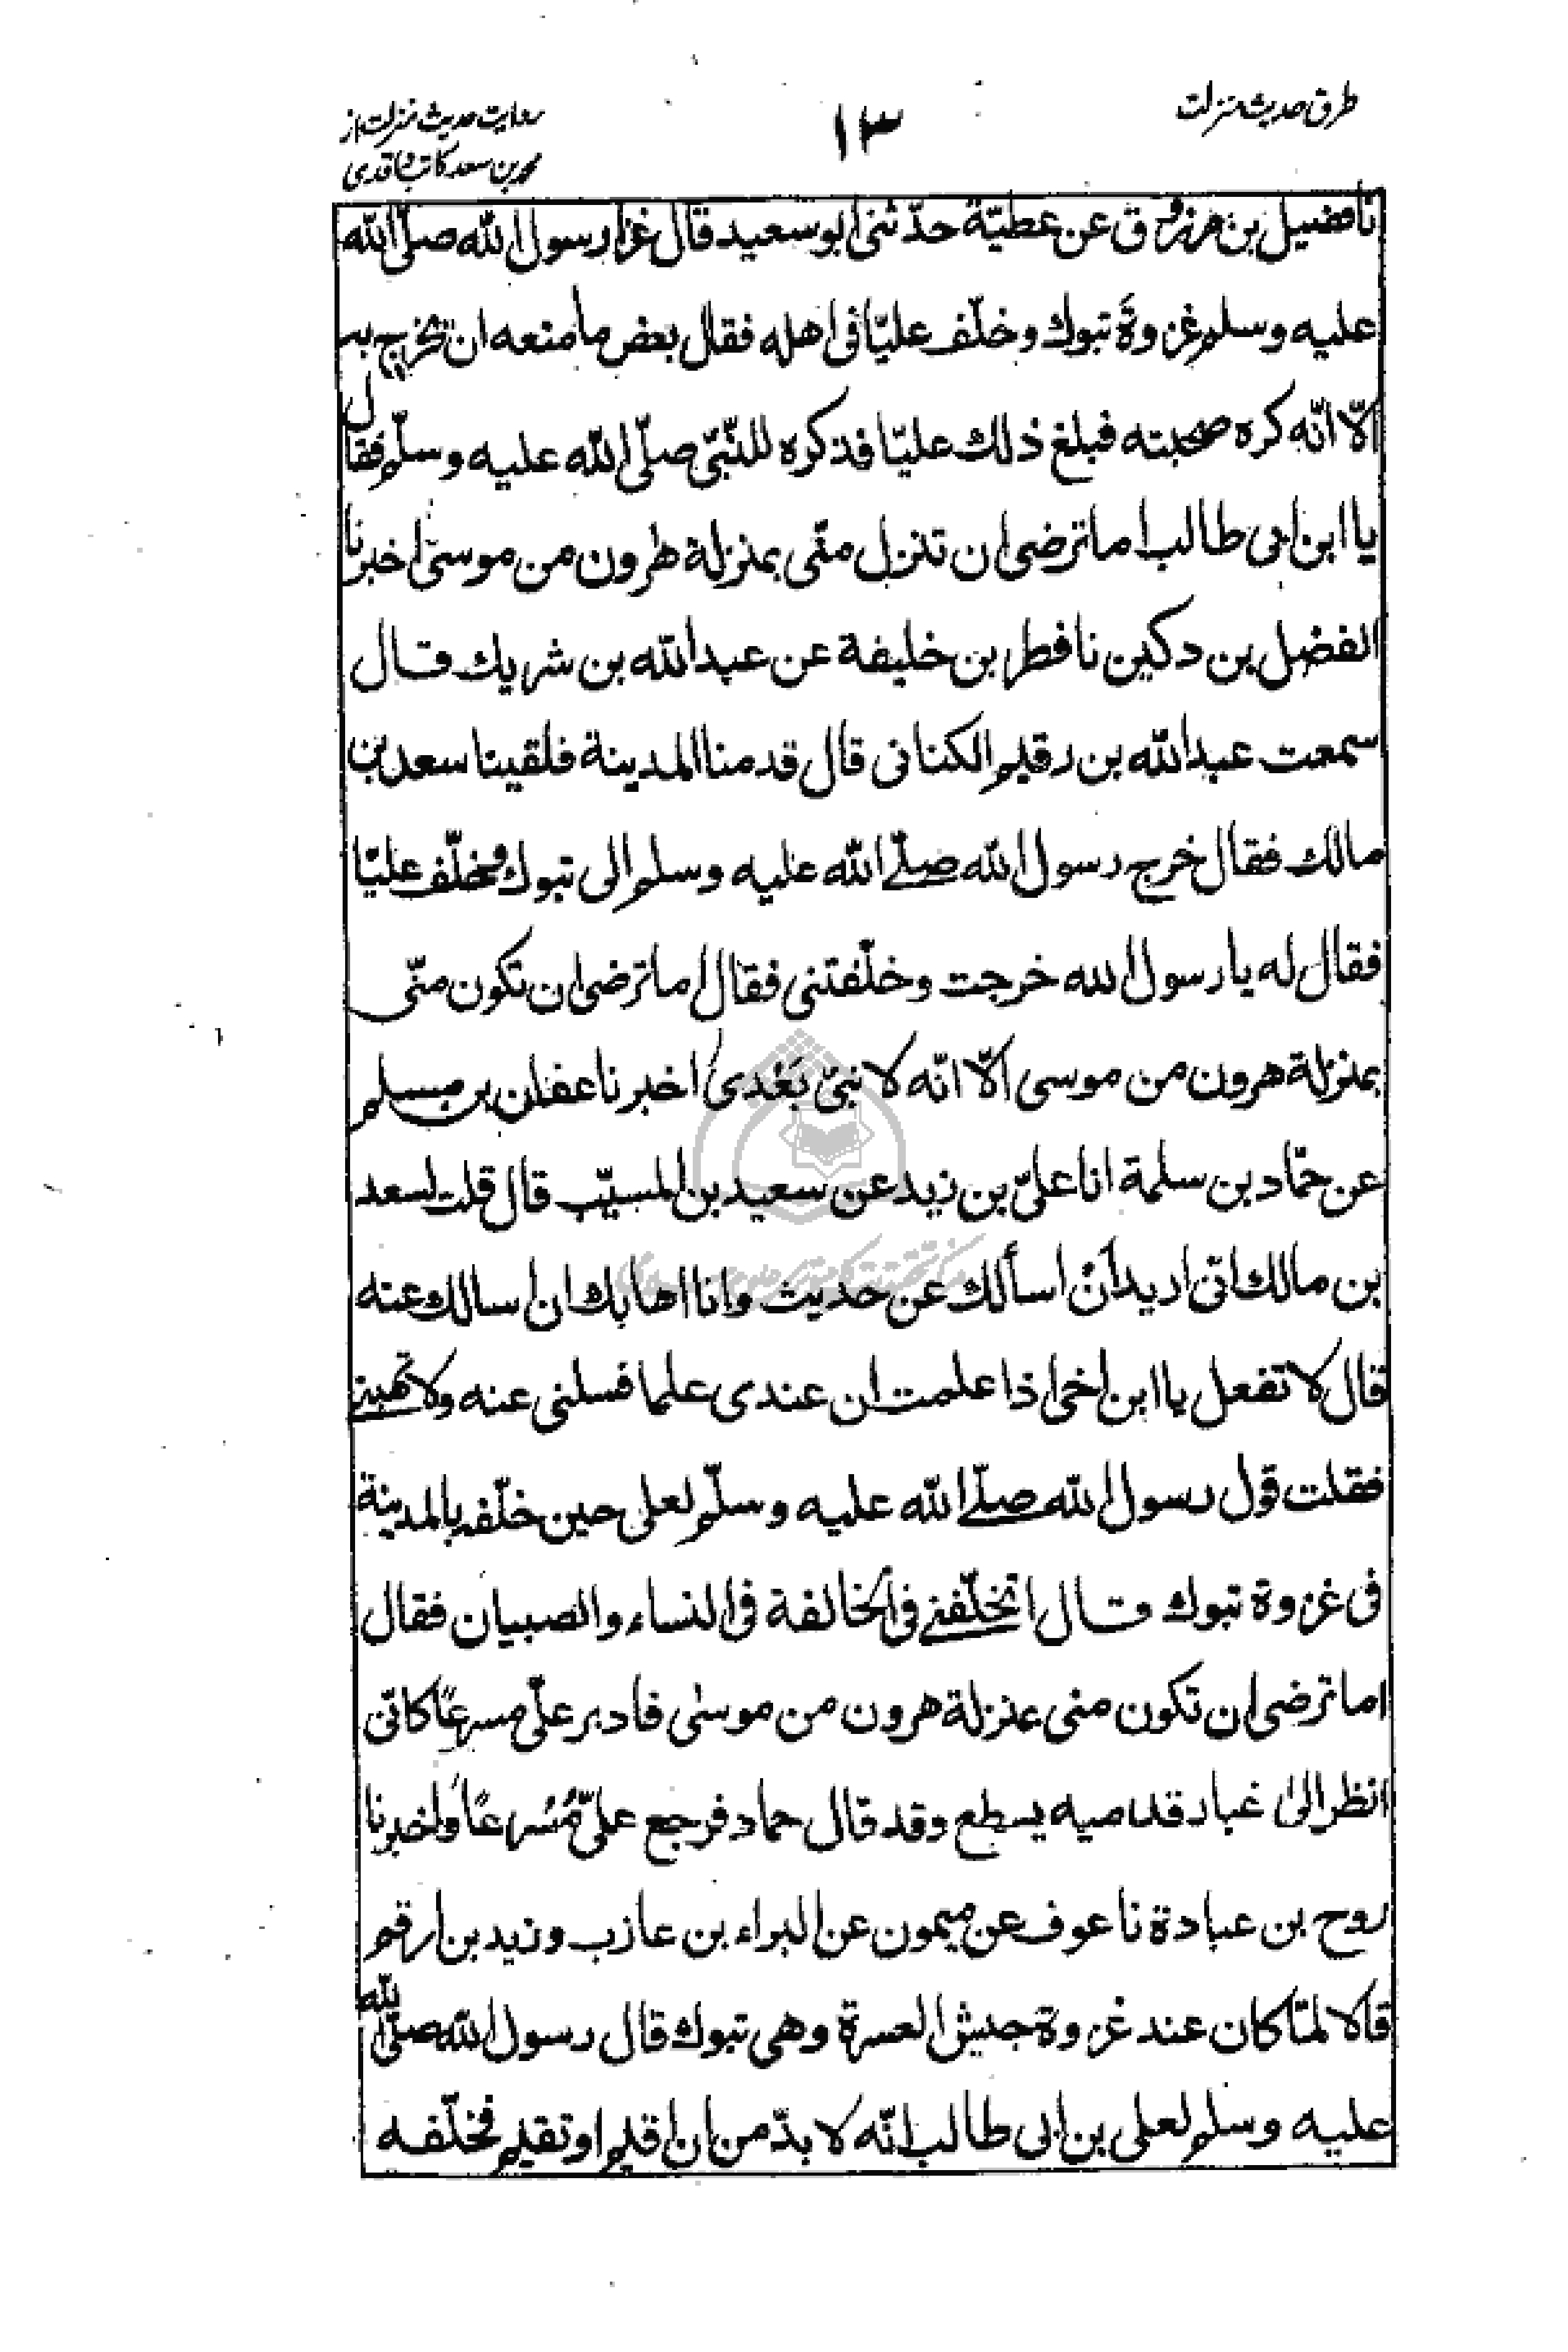 طرق حدیث منزلت
۱۳
روایت حدیث منزلت از
محمد بن سعد کاتب واقدی
نا فضيل بن مرزوق عن عطيّة حدّثنى ابو سعيد قال غزا رسول الله صلّى الله
عليه وسلم غزوة تبوك وخلّف عليّا فى اهله فقال بعض ما منعه ان يخرج به
الّا انّه كره صحبته فبلغ ذلك عليّا فذكره للنّبىّ صلّى الله عليه وسلّم فقال
يا ابن ابى طالب اما ترضى ان تنزل منّى بمنزلة هرون من موسىٰ اخبرنا
الفضل بن دكين نا فطر بن خليفة عن عبد الله بن شريك قال
سمعت عبد الله بن رقيم الكنانى قال قدمنا المدينة فلقينا سعد بن
مالك فقال خرج رسول الله صلّے الله عليه وسلم الى تبوك وخلّف عليّا
فقال له يا رسول الله خرجت وخلّفتنى فقال اما ترضى ان تكون منّى
بمنزلة هرون من موسى الّا انّه لا نبىّ بَعْدى اخبرنا عفان بن مسلم
عن حمّاد بن سلمة انا علىّ بن زيد عن سعيد بن المسيّب قال قلت لسعد
بن مالك انّى اريد أنْ اسألك عن حديث وانا اهابك ان اسالك عنه
قال لا تفعل يا ابن اخى اذا علمت ان عندى علما فسلنى عنه ولا تهبنے
فقلت قول رسول الله صلّے الله عليه وسلّم لعلى حين خلّفه بالمدينة
فى غزوة تبوك قال اتخلّفنے فى الخالفة فى النساء والصبيان فقال
اما ترضى ان تكون منى بمنزلة هرون من موسٰى فادبر علىّ مسرعًا كانّى
انظر الىٰ غبار قدميه يسطع وقد قال حماد فرجع علىّ مُسْرعًا واخبرنا
روح بن عبادة نا عوف عن ميمون عن البراء بن عازب وزيد بن ارقم
قالا لمّا كان عند غزوة جيش العسرة وهى تبوك قال رسول الله صلّى الله
عليه وسلم لعلى بن ابى طالب انّه لا بدّ من ان اقيم او تقيم فخلّفه